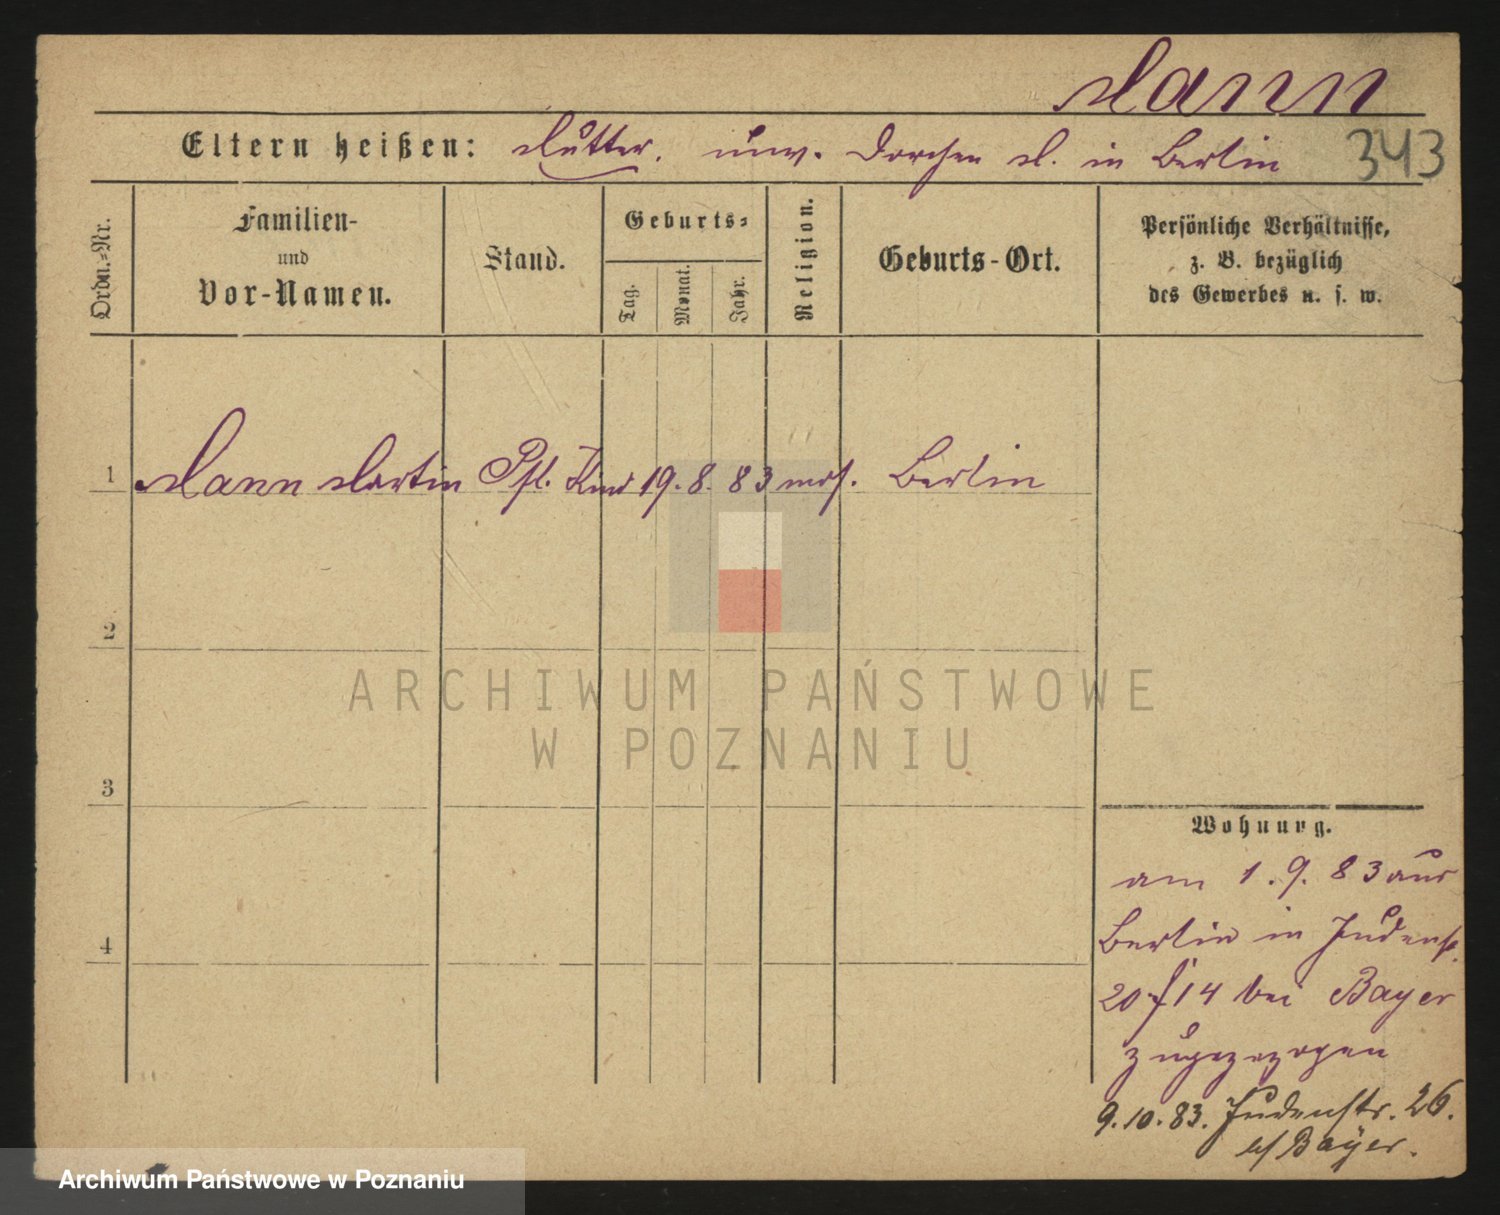 Mann
343
Eltern heißen: Mutter. unv. Dorchen M. in Berlin
Ordn.-Nr.
Familien-
und
Vor-Namen.
Stand.
Geburts-
Tag.
Monat.
Jahr.
Religion.
Geburts-Ort.
Persönliche Verhältnisse,
z. B. bezüglich
des Gewerbes u. s. w.
1 Mann Martin Pfl. Kind 19. 8. 83 mos. Berlin
2
3
4
Wohnung.
am 1. 9. 83 aus
Berlin in Judenstr.
20/14 bei Bayer
zugezogen
9. 10. 83. Judenstr. 26.
b/ Bayer.
ARCHIWUM PAŃSTWOWE
W POZNANIU
Archiwum Państwowe w Poznaniu